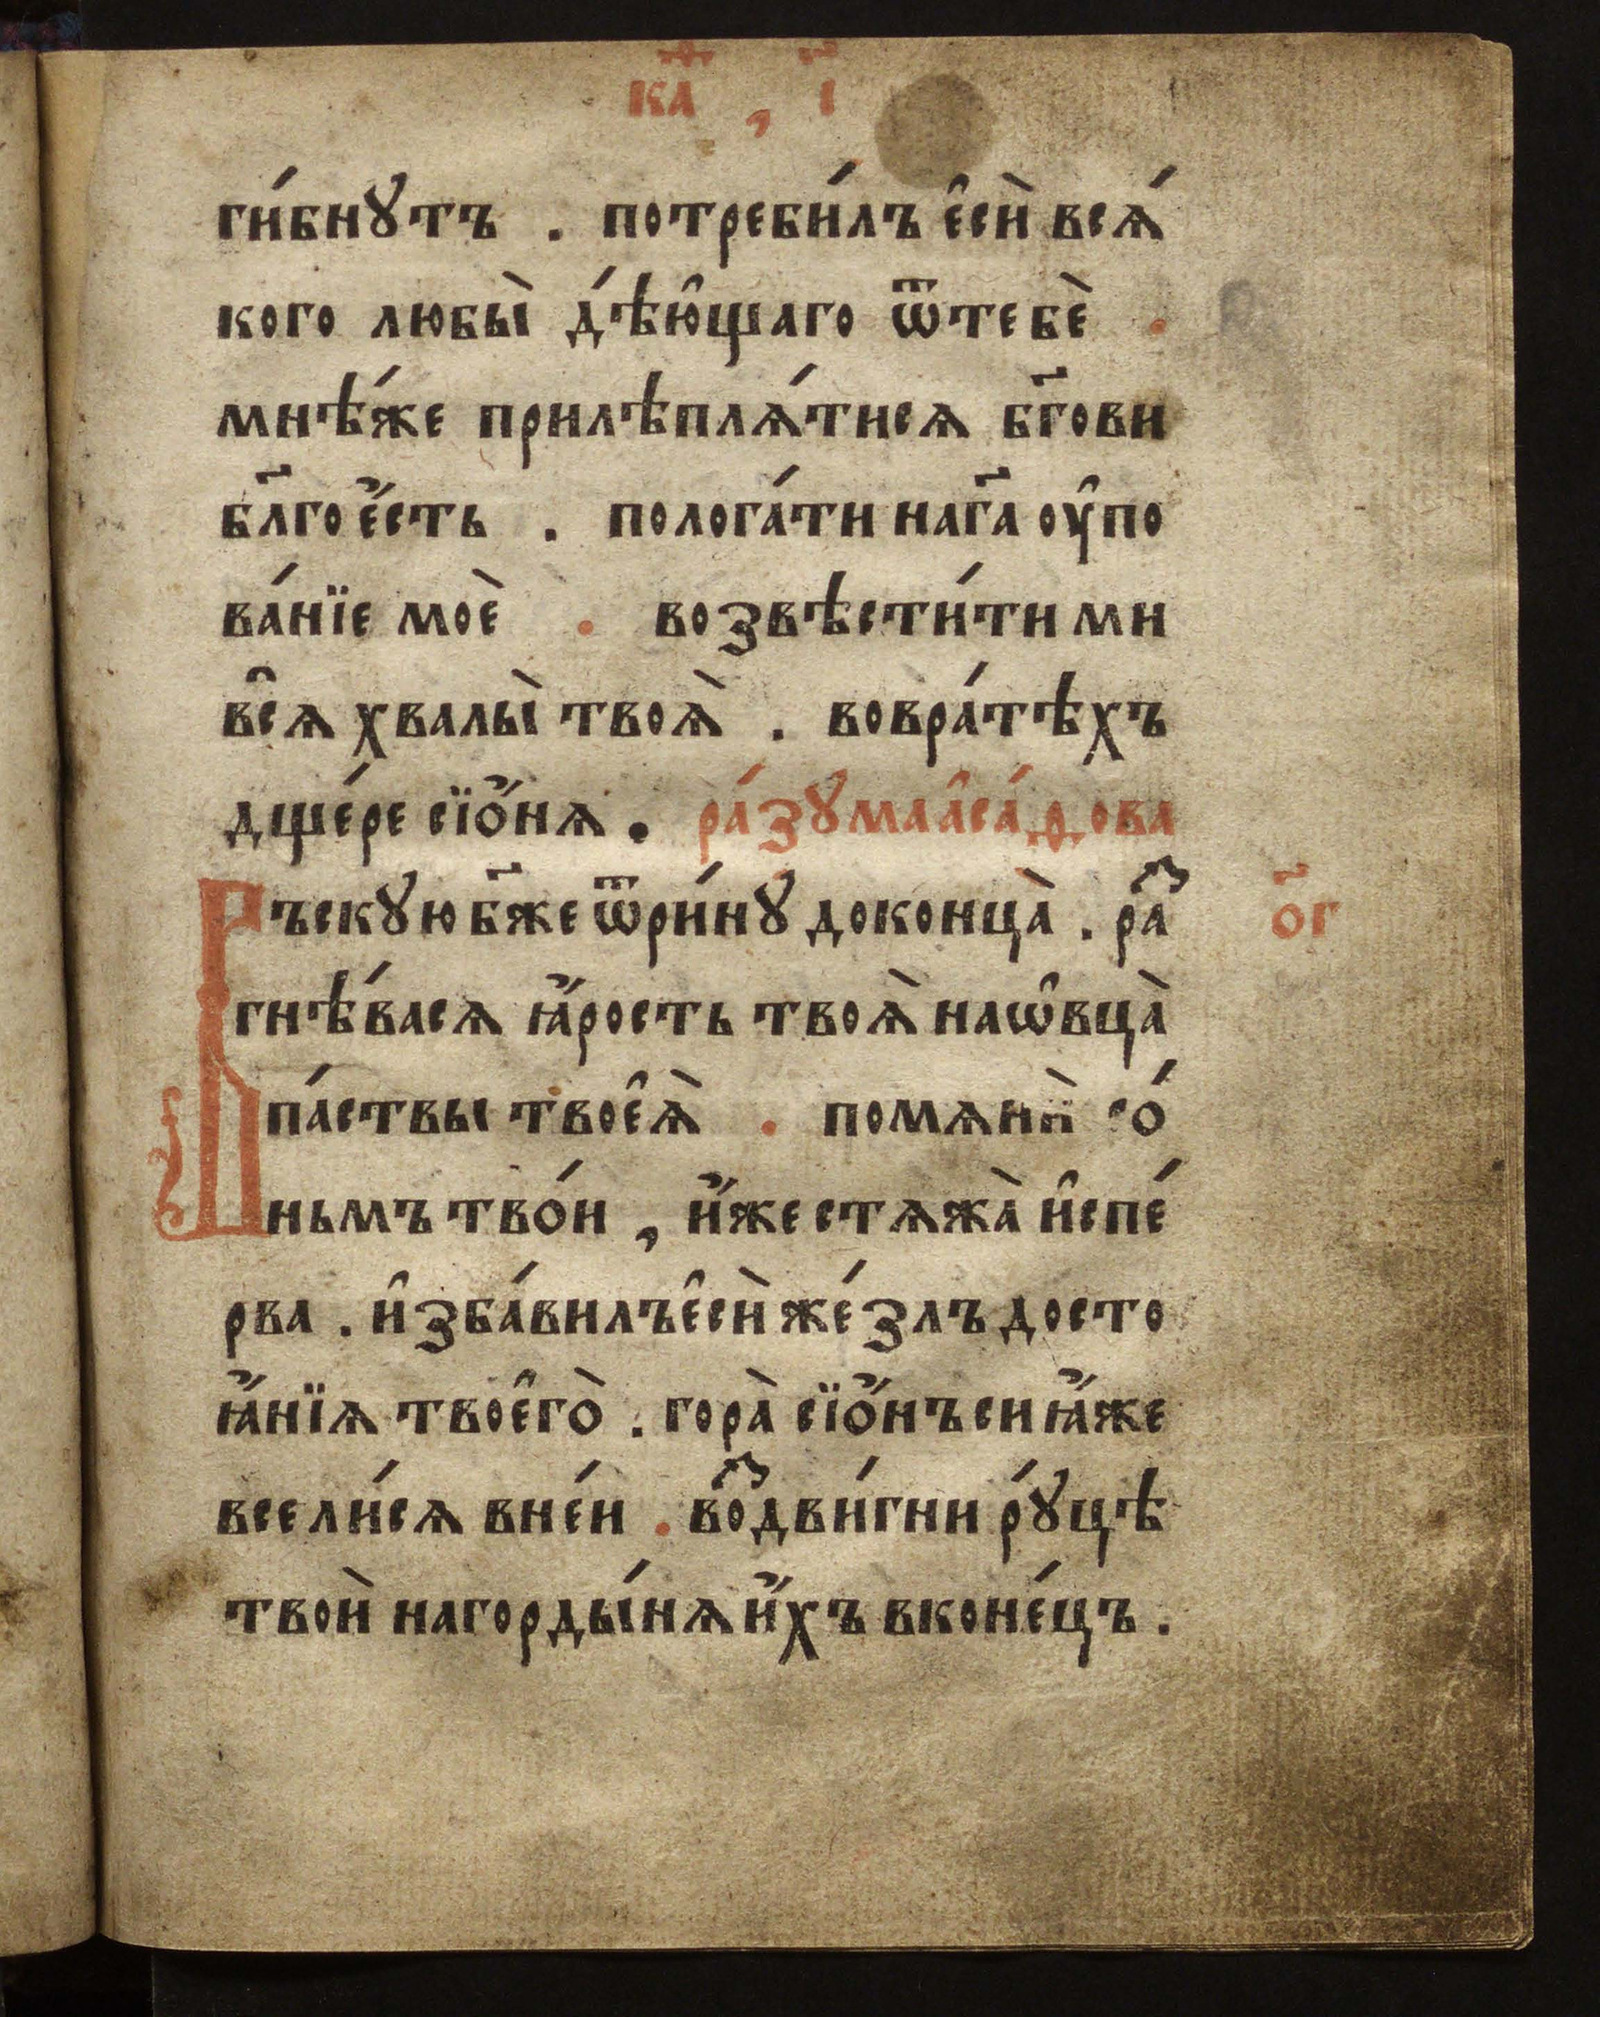 каѳ , і҃
ги́бнꙋтъ . потреби́лъ є̑сѝ всѧ́
кого любы̀ дѣ́ю̑щаго ѿтебѐ .
мнѣ́же прилѣплѧ́тисѧ бг҃ови
бл҃го є҆́сть . пологати нага҃ оу̑по
ва́нїе моѐ . возвѣсти́ти ми
всѧ̑ хвалы̀ твоѧ̀ . вовра́тѣхъ
дще́ре сїѡ́нѧ . ра́зꙋма а̑са́ѳова
Въскꙋю бж҃е ѿри́нꙋ доконца̀ . раз ог҃
гнѣ́васѧ ꙗ҆́рость твоѧ̀ наѡ̑вца̀
па́ствы твоє̑ѧ̀ . помѧнѝ со́
ньмъ тво́и , и҆́же стѧжа̀ и̑спе́
рва . и̑зба́вилъ є̑сѝ же́злъ досто
ꙗ҆́нїѧ твоє̑го̀ . гора̀ сїѡ́нъ си ꙗ҆́же
всели́сѧ вне́и . воздви́гни рꙋ́цѣ
твоѝ нагорды́нѧ и҆́хъ вконе́цъ .